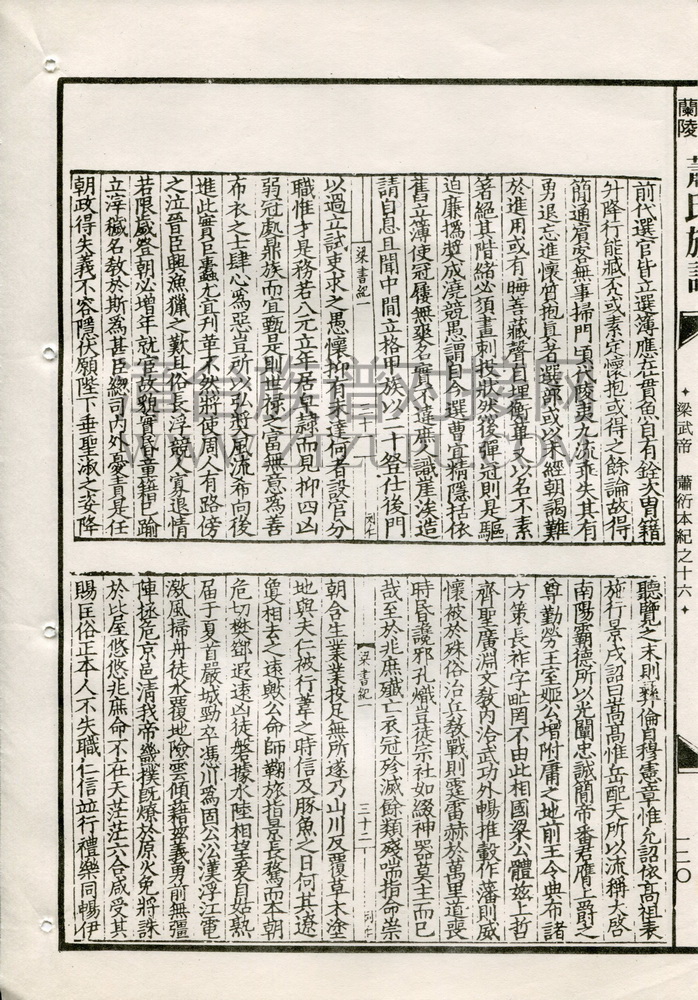 蘭陵 蕭氏族譜
梁武帝 蕭衍本紀之十六
一二〇
前代選官皆立選簿應在貫魚自有銓次胄籍
升降行能臧否或素定懷抱或得之餘論故得
簡通賓客無事掃門頃代陵夷九流乖失其有
勇退忘進懷質抱真者選部或以未經朝謁難
於進用或有晦善藏聲自埋衡蓽又以名不素
著絕其階緒必須畫刺投狀然後彈冠則是驅
迫廉撝奬成澆競愚謂自今選曹宜精隱括依
舊立簿使冠屨無爽名實不違庶人識崖涘造
請自息且聞中間立格甲族以二十登仕後門
梁書紀一
三十一
以過立試吏求之愚懷抑有未達何者設官分
職惟才是務若八元立年居皁隸而見抑四凶
弱冠處鼎族而宜甄是則世祿之富無意為善
布衣之士肆心為惡豈所以弘獎風流希向後
進此實巨蠹尤宜刋革不然將使周人有路傍
之泣晉臣興漁獵之歎且俗長浮競人寡退情
若限歲登朝必增年就宦故貌實昏童籍已踰
立滓穢名教於斯為甚臣總司內外憂責是任
朝政得失義不容隱伏願陛下垂聖淑之姿降
聽覽之末則彝倫自穆憲章惟允詔依高祖表
施行景戌詔曰嵩高惟岳配天所以流稱大啓
南陽霸德所以光闡忠誠簡帝番君膺上爵之
尊勤勞王室姬公增附庸之地前王令典布諸
方策長祚字甿罔不由此相國梁公體茲上哲
齊聖廣淵文教內洽武功外暢推轂作藩則威
懷被於殊俗治兵教戰則霆雷赫於萬里道喪
時昏讒邪孔熾豈徒宗社如綴神器莫主而已
哉至於兆庶殲亡衣冠殄滅餘類殘喘指命崇
梁書紀一
三十二
朝含生業業投足無所遂乃山川反覆草木塗
地與夫仁被行葦之時信及豚魚之日何其遼
敻相去之遠歟公命師鞠旅指景長騖而本朝
危切樊鄧遐遠凶徒盤據水陸相望爰自姑孰
届于夏首嚴城勁卒馮川為固公沿漢浮江電
激風掃舟徒水覆地險雲傾藉茲義勇前無彊
陣拯危京邑清我帝畿撲旣燎於原火免將誅
於比屋悠悠兆庶命不在天茫茫六合咸受其
賜匡俗正本人不失職仁信並行禮樂同暢伊